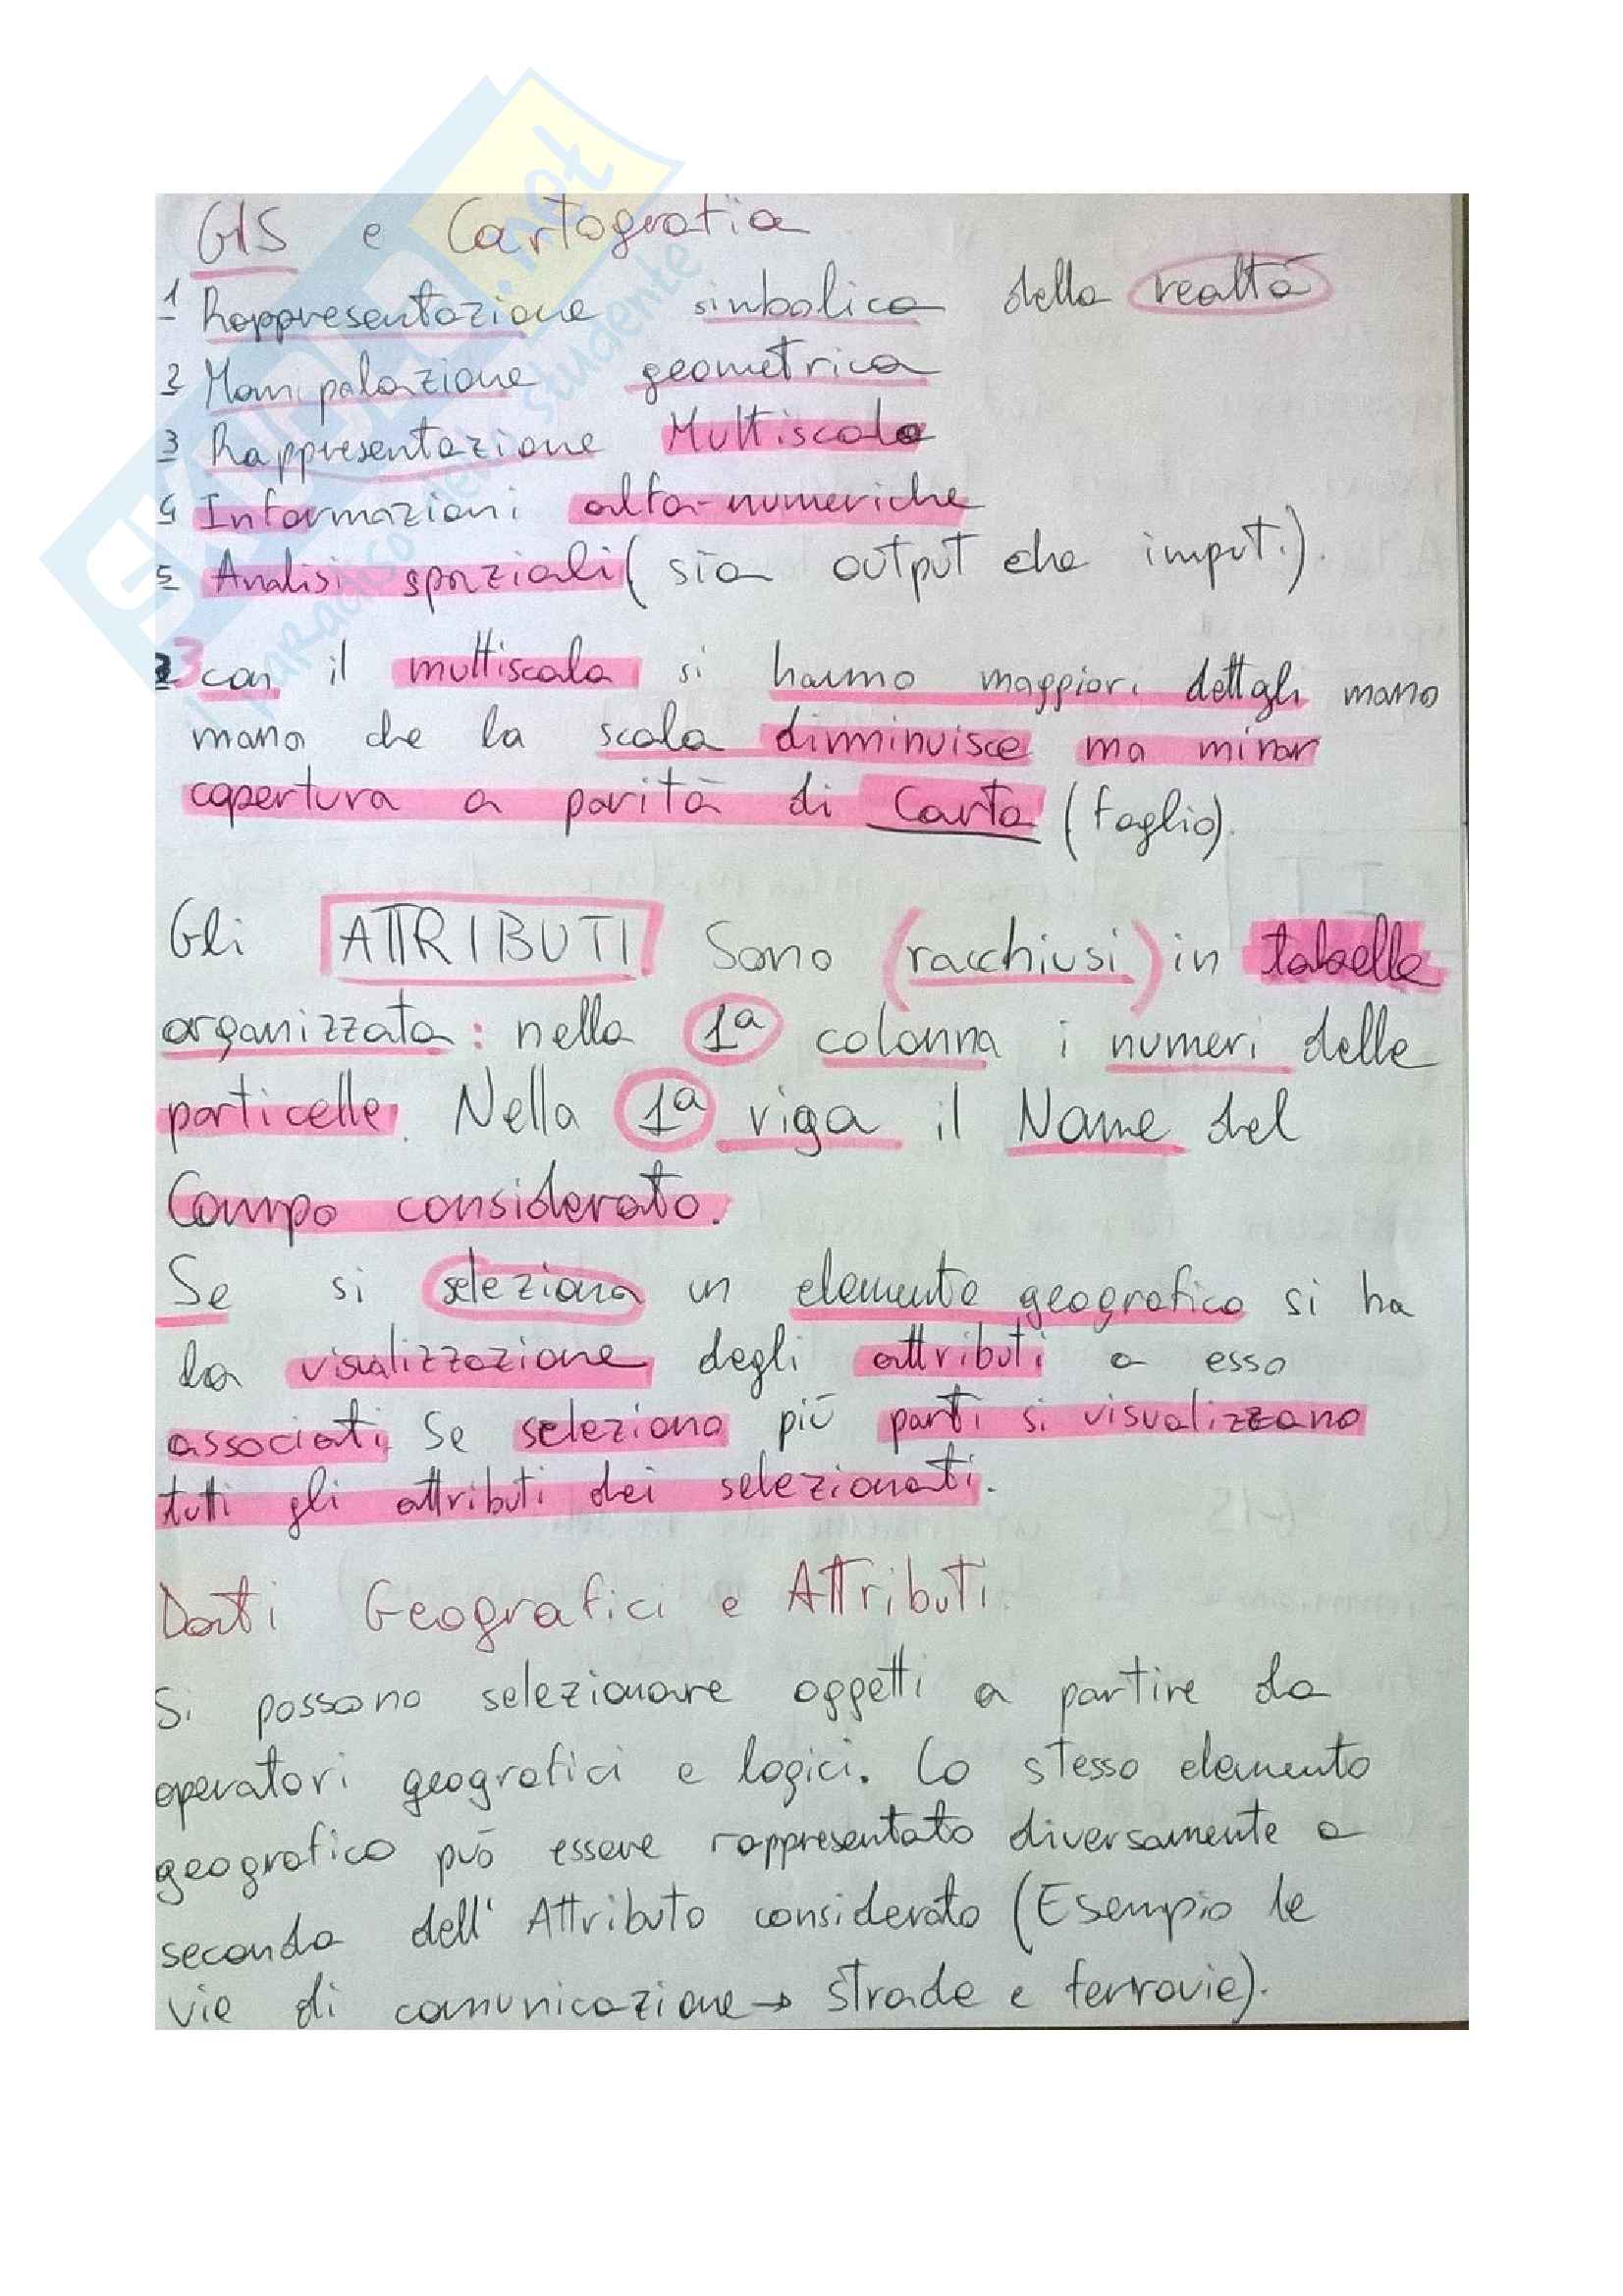 GIS e Cartografia
1 Rappresentazione simbolica della realtà
2 Manipolazione geometrica
3 Rappresentazione Multiscala
4 Informazioni alfa-numeriche
5 Analisi spaziali (sia output che imput.).
3 con il multiscala si hanno maggiori dettagli mano
mano che la scala dimminuisce ma minor
copertura a parità di Carta (foglio).
Gli ATTRIBUTI Sono (racchiusi) in tabelle
organizzata: nella 1ª colonna i numeri delle
particelle. Nella 1ª riga il Nome del
Campo considerato.
Se si seleziona un elemento geografico si ha
la visualizzazione degli attributi a esso
associati. Se seleziono più parti si visualizzano
tutti gli attributi dei selezionati.
Dati Geografici e Attributi.
Si possono selezionare oggetti a partire da
operatori geografici e logici. Lo stesso elemento
geografico può essere rappresentato diversamente a
seconda dell' Attributo considerato (Esempio le
vie di comunicazione → strade e ferrovie).
SKUOLA.net
il paradiso dello studente